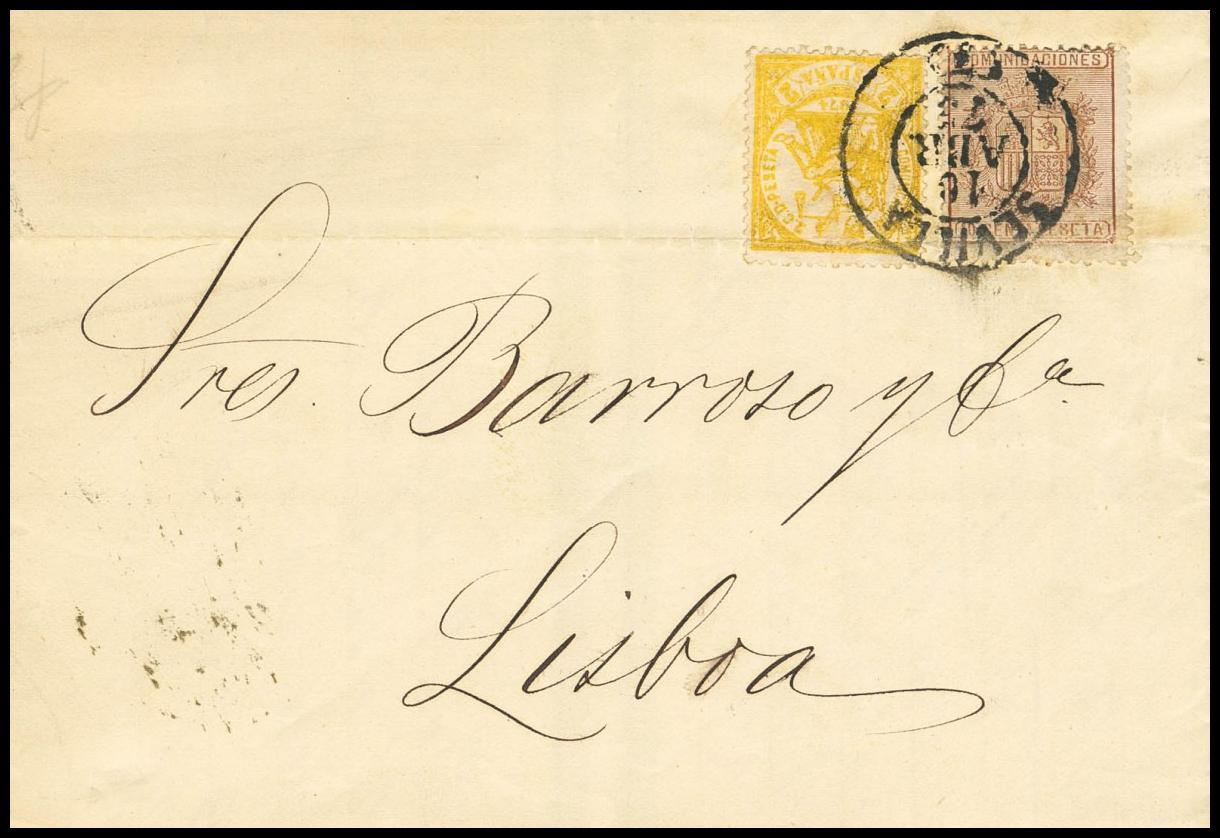 COMUNICACIONES
SEVILLA
16
ABR
75
Sres. Barroso y Ca
Lisboa